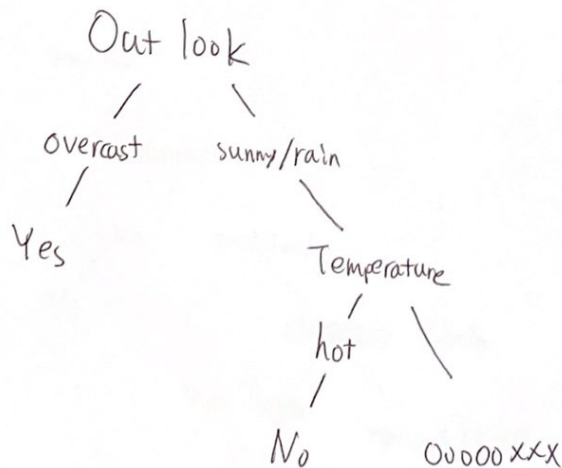 Out look
overcast sunny/rain
Yes
Temperature
hot
No OOOOOXXX